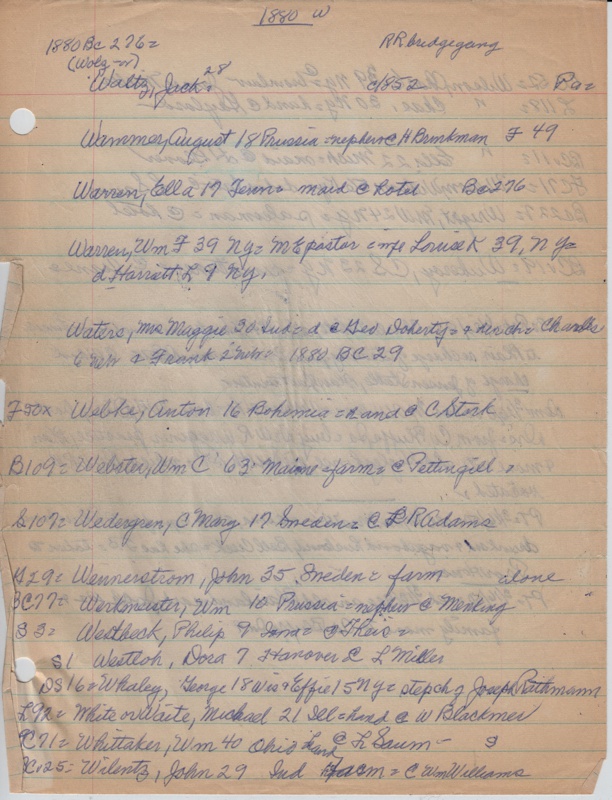 1880 W
1880 BC 276= RR bridgegang
(Wolz-n)
Waltz, Jack= 28 c/852 Pa=
Wammer, August 18 Prussia=nephew c H Brinkman F 49
Warren, Ella 17 Tenn= maid c hotel Bc276
Warren, Wm F 39 NY= ME pastor=wife Louise K 39, NY=
d Harriett L 9 NY.
Waters, Mrs Maggie 30 Ind= d c Geo Doherty= + her ch= Charles
6 Neb & Frank 2 Neb= 1880 BC 29
Webke, Anton 16 Bohemia= c C Stork
B109= Webster, Wm C 63 Maine=farm= c Pettingill=
S107= Wedergren, C Mary 17 Sweden= C R Adams
29= Wennerstrom, John 35, Sweden= farm alone
BC77= Werkmeister, Wm 10 Prussia=nephew c Menling
S 3= Westbeck, Philip 9 Iowa= c Theis=
S1 Westloh, Dora 7 Hanover C L Miller
DS16= Whaley, George 18 Wis & Effie 15 NY= stepch of Joseph Rathmann
L92= White or Waite, Michael 21 Ill=hand c W Blackmer
BC71= Whittaker, Wm 40 Ohio hand C L Saum- S
25= Wilentz, John 29 Ind farm= C Wm Williams